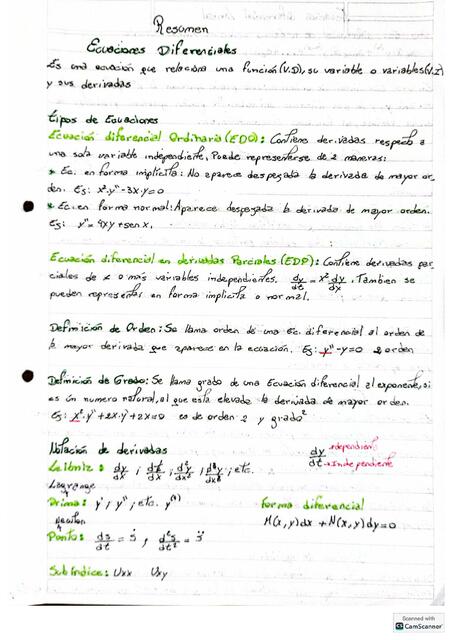 Resumen
Ecuaciones Diferenciales
Es una ecuación que relaciona una función (V.D), su variable o variables (V.I)
y sus derivadas
tipos de Ecuaciones
Ecuación diferencial Ordinaria (EDO): Contiene derivadas respecto a
una sola variable independiente, Puede representarse de 2 maneras:
* Ec. en forma implícita: No aparece despejada la derivada de mayor or-
den. Ej: x².y''-3x.y=0
* Ec. en forma normal: Aparece despejada la derivada de mayor orden.
Ej: y''= 4xy + sen x.
Ecuación diferencial en derivadas Parciales (EDP): Contiene derivadas par-
ciales de 2 o más variables independientes. dy/dt = x² dy/dx. Tambien se
pueden representar en forma implícita o normal.
Definición de Orden: Se llama orden de una Ec. diferencial al orden de
la mayor derivada que aparece en la ecuación. Ej: y''-y=0 2 orden
Definición de Grado: Se llama grado de una Ecuación diferencial al exponente, si
es un numero natural, al que esta elevada la derivada de mayor orden.
Ej: x².y''+2x.y'+2x=0 es de orden 2 y grado
Notación de derivadas
dy/dt →dependiente →Independiente
Leibniz: dy/dx ; ; etc.
Lagrange
Prima: y'; y''; etc.
forma diferencial
M(x,y)dx + N(x,y)dy=0
newton
Punto: ds/dt = ṡ , d²s/dt² = s̈
Subíndice: Uxx Uxy
Scanned with
CS CamScanner